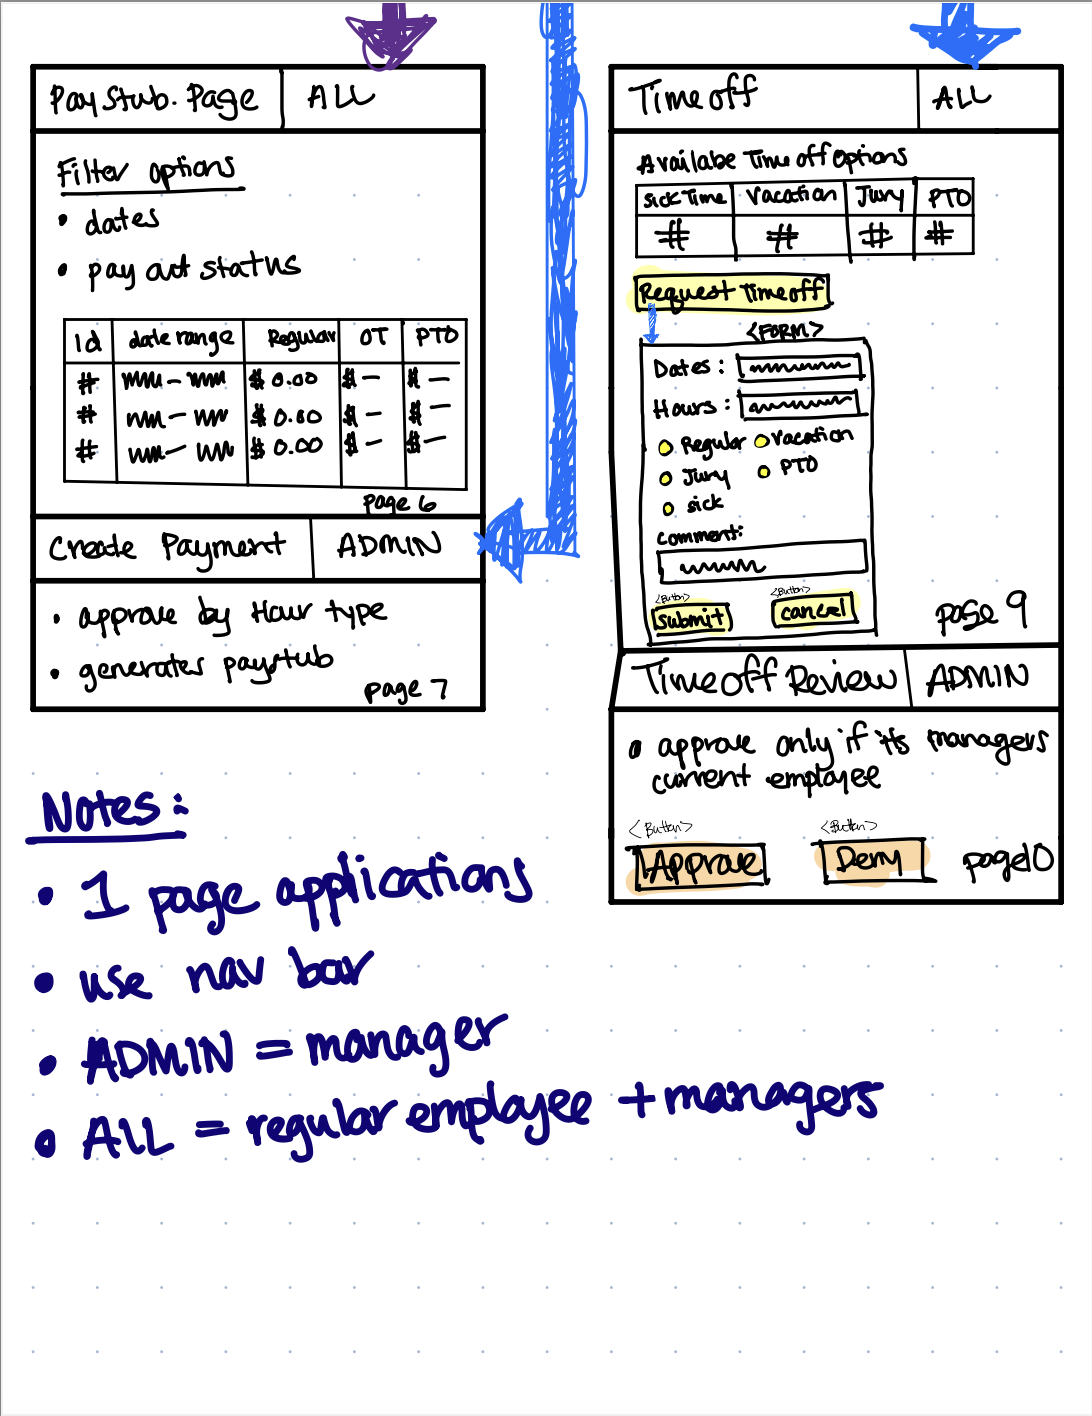 PayStub. Page ALL
Filter options
• dates
• pay out status
Id date range Regular OT PTO
# $ 0.00 $ — $ —
# $ 0.00 $ — $ —
# $ 0.00 $ — $ —
page 6
Create Payment ADMIN
• approve by Hour type
• generates paystub
page 7
Time off ALL
Availabe Time off Options
sick Time Vacation Jury PTO
# # # #
Request Time off
<FORM>
Dates :
Hours :
Regular Vacation
Jury PTO
sick
comment:
<Button> <Button>
submit cancel
page 9
Time off Review ADMIN
• approve only if its managers
current employee
<Button> <Button>
Approve Deny page 10
Notes:
• 1 page applications
• use nav bar
• ADMIN = manager
• ALL = regular employee + managers